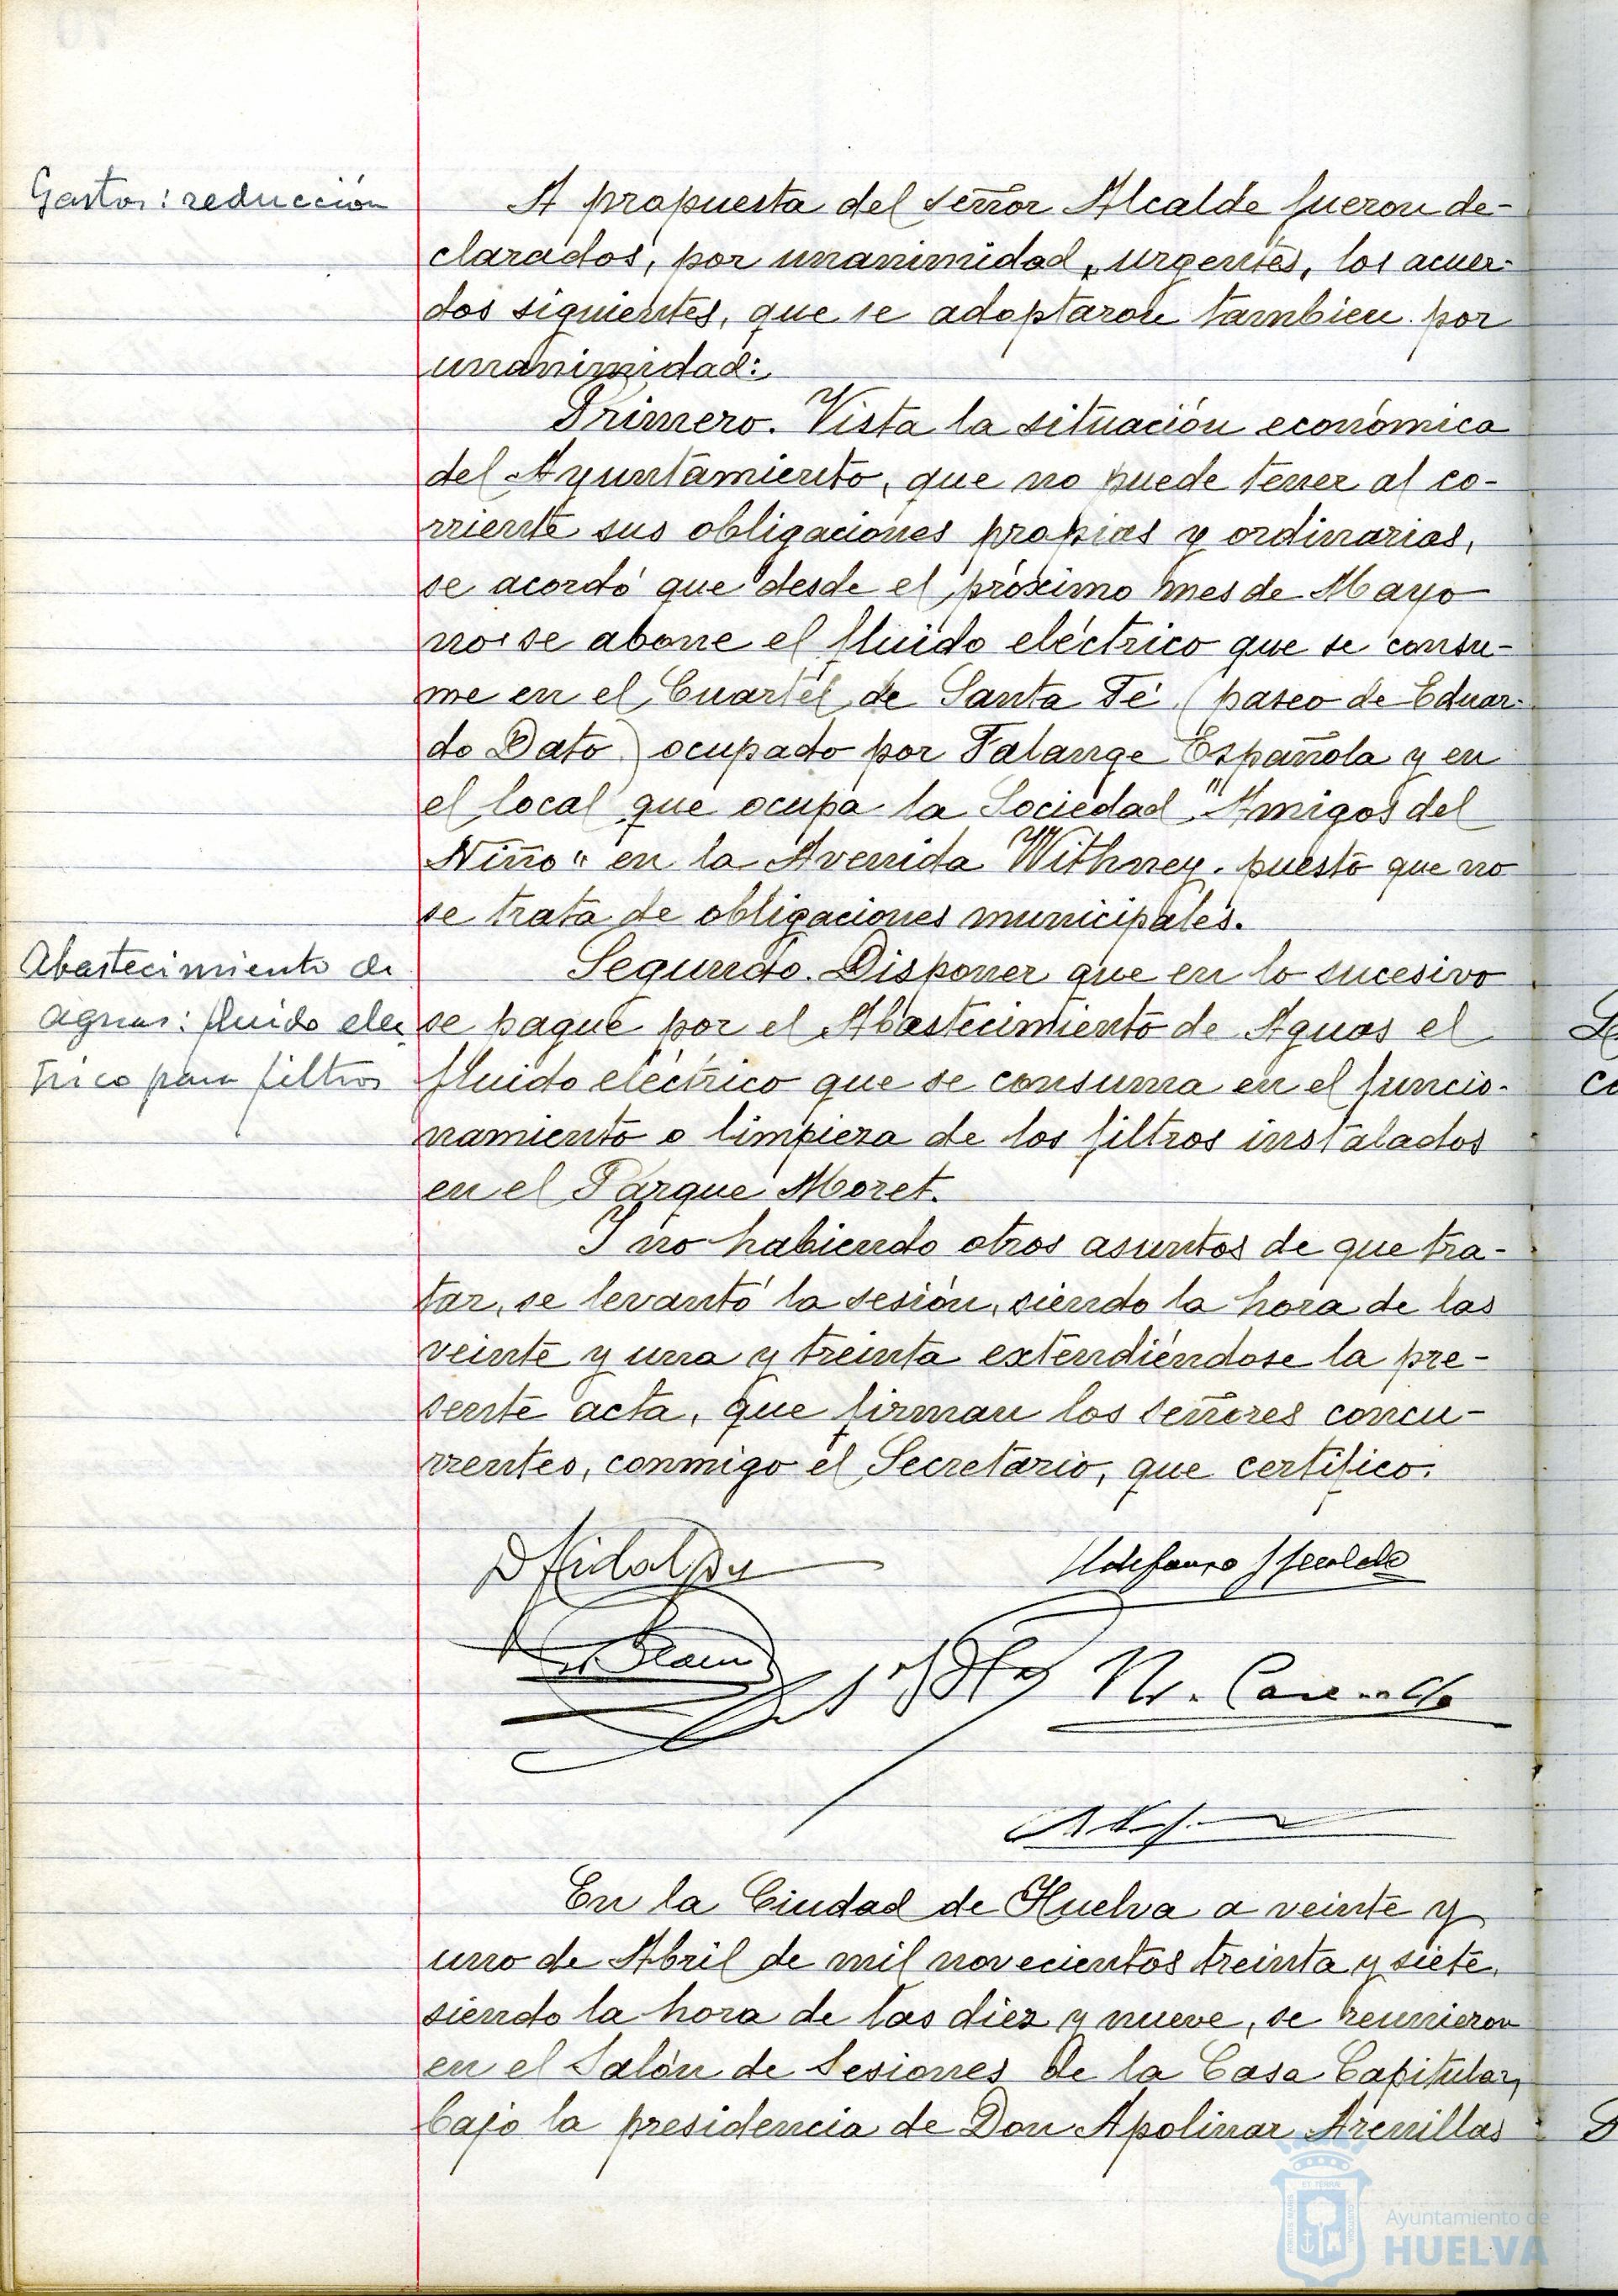 Gastos: reducción
A propuesta del señor Alcalde fueron de-
clarados, por unanimidad, urgentes, los acuer-
dos siguientes, que se adoptaron tambien por
unanimidad:
Primero. Vista la situación económica
del Ayuntamiento, que no puede tener al co-
rriente sus obligaciones propias y ordinarias,
se acordó que desde el próximo mes de Mayo
no se abone el fluido eléctrico que se consu-
me en el Cuartel de Santa Fé (paseo de Eduar-
do Dato) ocupado por Falange Española y en
el local que ocupa la Sociedad "Amigos del
Niño" en la Avenida Withney, puesto que no
se trata de obligaciones municipales.
Abastecimiento de
aguas: fluido elec
trico para filtros
Segundo. Disponer que en lo sucesivo
se pague por el Abastecimiento de Aguas el
fluido eléctrico que se consuma en el funcio-
namiento o limpieza de los filtros instalados
en el Parque Moret.
Y no habiendo otros asuntos de que tra-
tar, se levantó la sesión, siendo la hora de las
veinte y una y treinta extendiéndose la pre-
sente acta, que firman los señores concu-
rrentes, conmigo el Secretario, que certifico.
D Hidalgo
Ildefonso
En la Ciudad de Huelva a veinte y
uno de Abril de mil novecientos treinta y siete,
siendo la hora de las diez y nueve, se reunieron
en el Salón de Sesiones de la Casa Capitular,
bajo la presidencia de Don Apolinar Arenillas
Ayuntamiento de
HUELVA